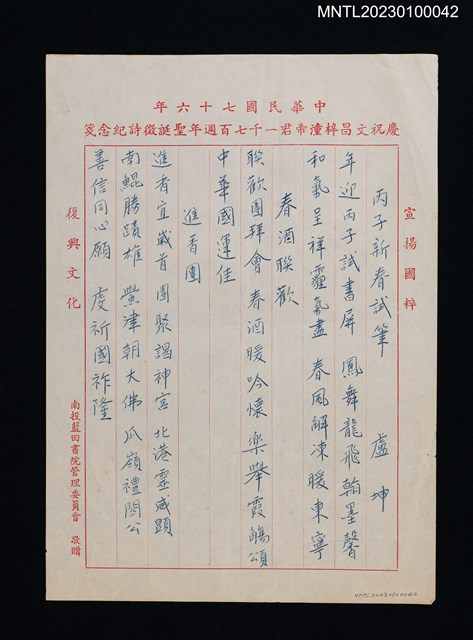 MNTL20230100042
中華民國七十六年
慶祝文昌梓潼帝君一千七百週年聖誕徵詩紀念箋
宣揚國粹
丙子新春試筆　盧坤
年迎丙子試書屏　鳳舞龍飛翰墨馨
和氣呈祥霾氣盡　春風解凍暖東寧
春酒聯歡
聯歡團拜會　春酒暖吟懷　樂舉霞觴頌
中華國運佳
進香團
進香宜歲首　團聚謁神宮　北港靈威顯
南鯤勝蹟雄　鱟津朝大佛　爪嶺禮關公
善信同心願　虔祈國祚隆
復興文化
南投藍田書院管理委員會　敬贈
MNTL20230100042